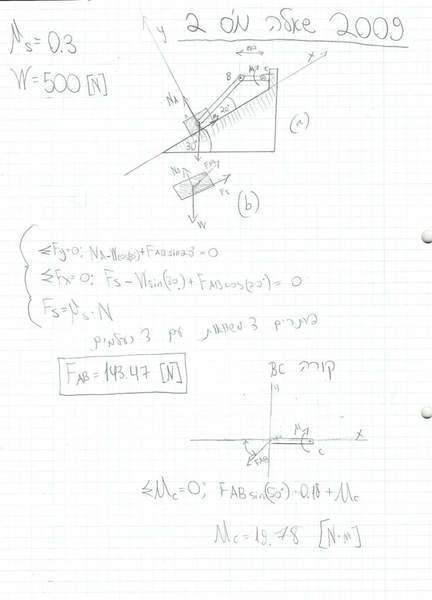 2009 שאלה מס 2
μs = 0.3
W = 500 [N]
y
x
B
M
c
NA
20°
30°
(a)
FAB
Fs
W
(b)
ΣFy=0; NA-Wcos(30)+FAB sin20°=0
ΣFx=0; Fs-Wsin(30)+FAB cos(20°)=0
Fs=μs·N
פותרים 3 משוואות עם 3 נעלמים
FAB = 143.47 [N]
קורה BC
y
x
M
c
FAB
ΣMc=0; FAB sin(50°)·0.18+Mc
Mc=19.78 [N·m]